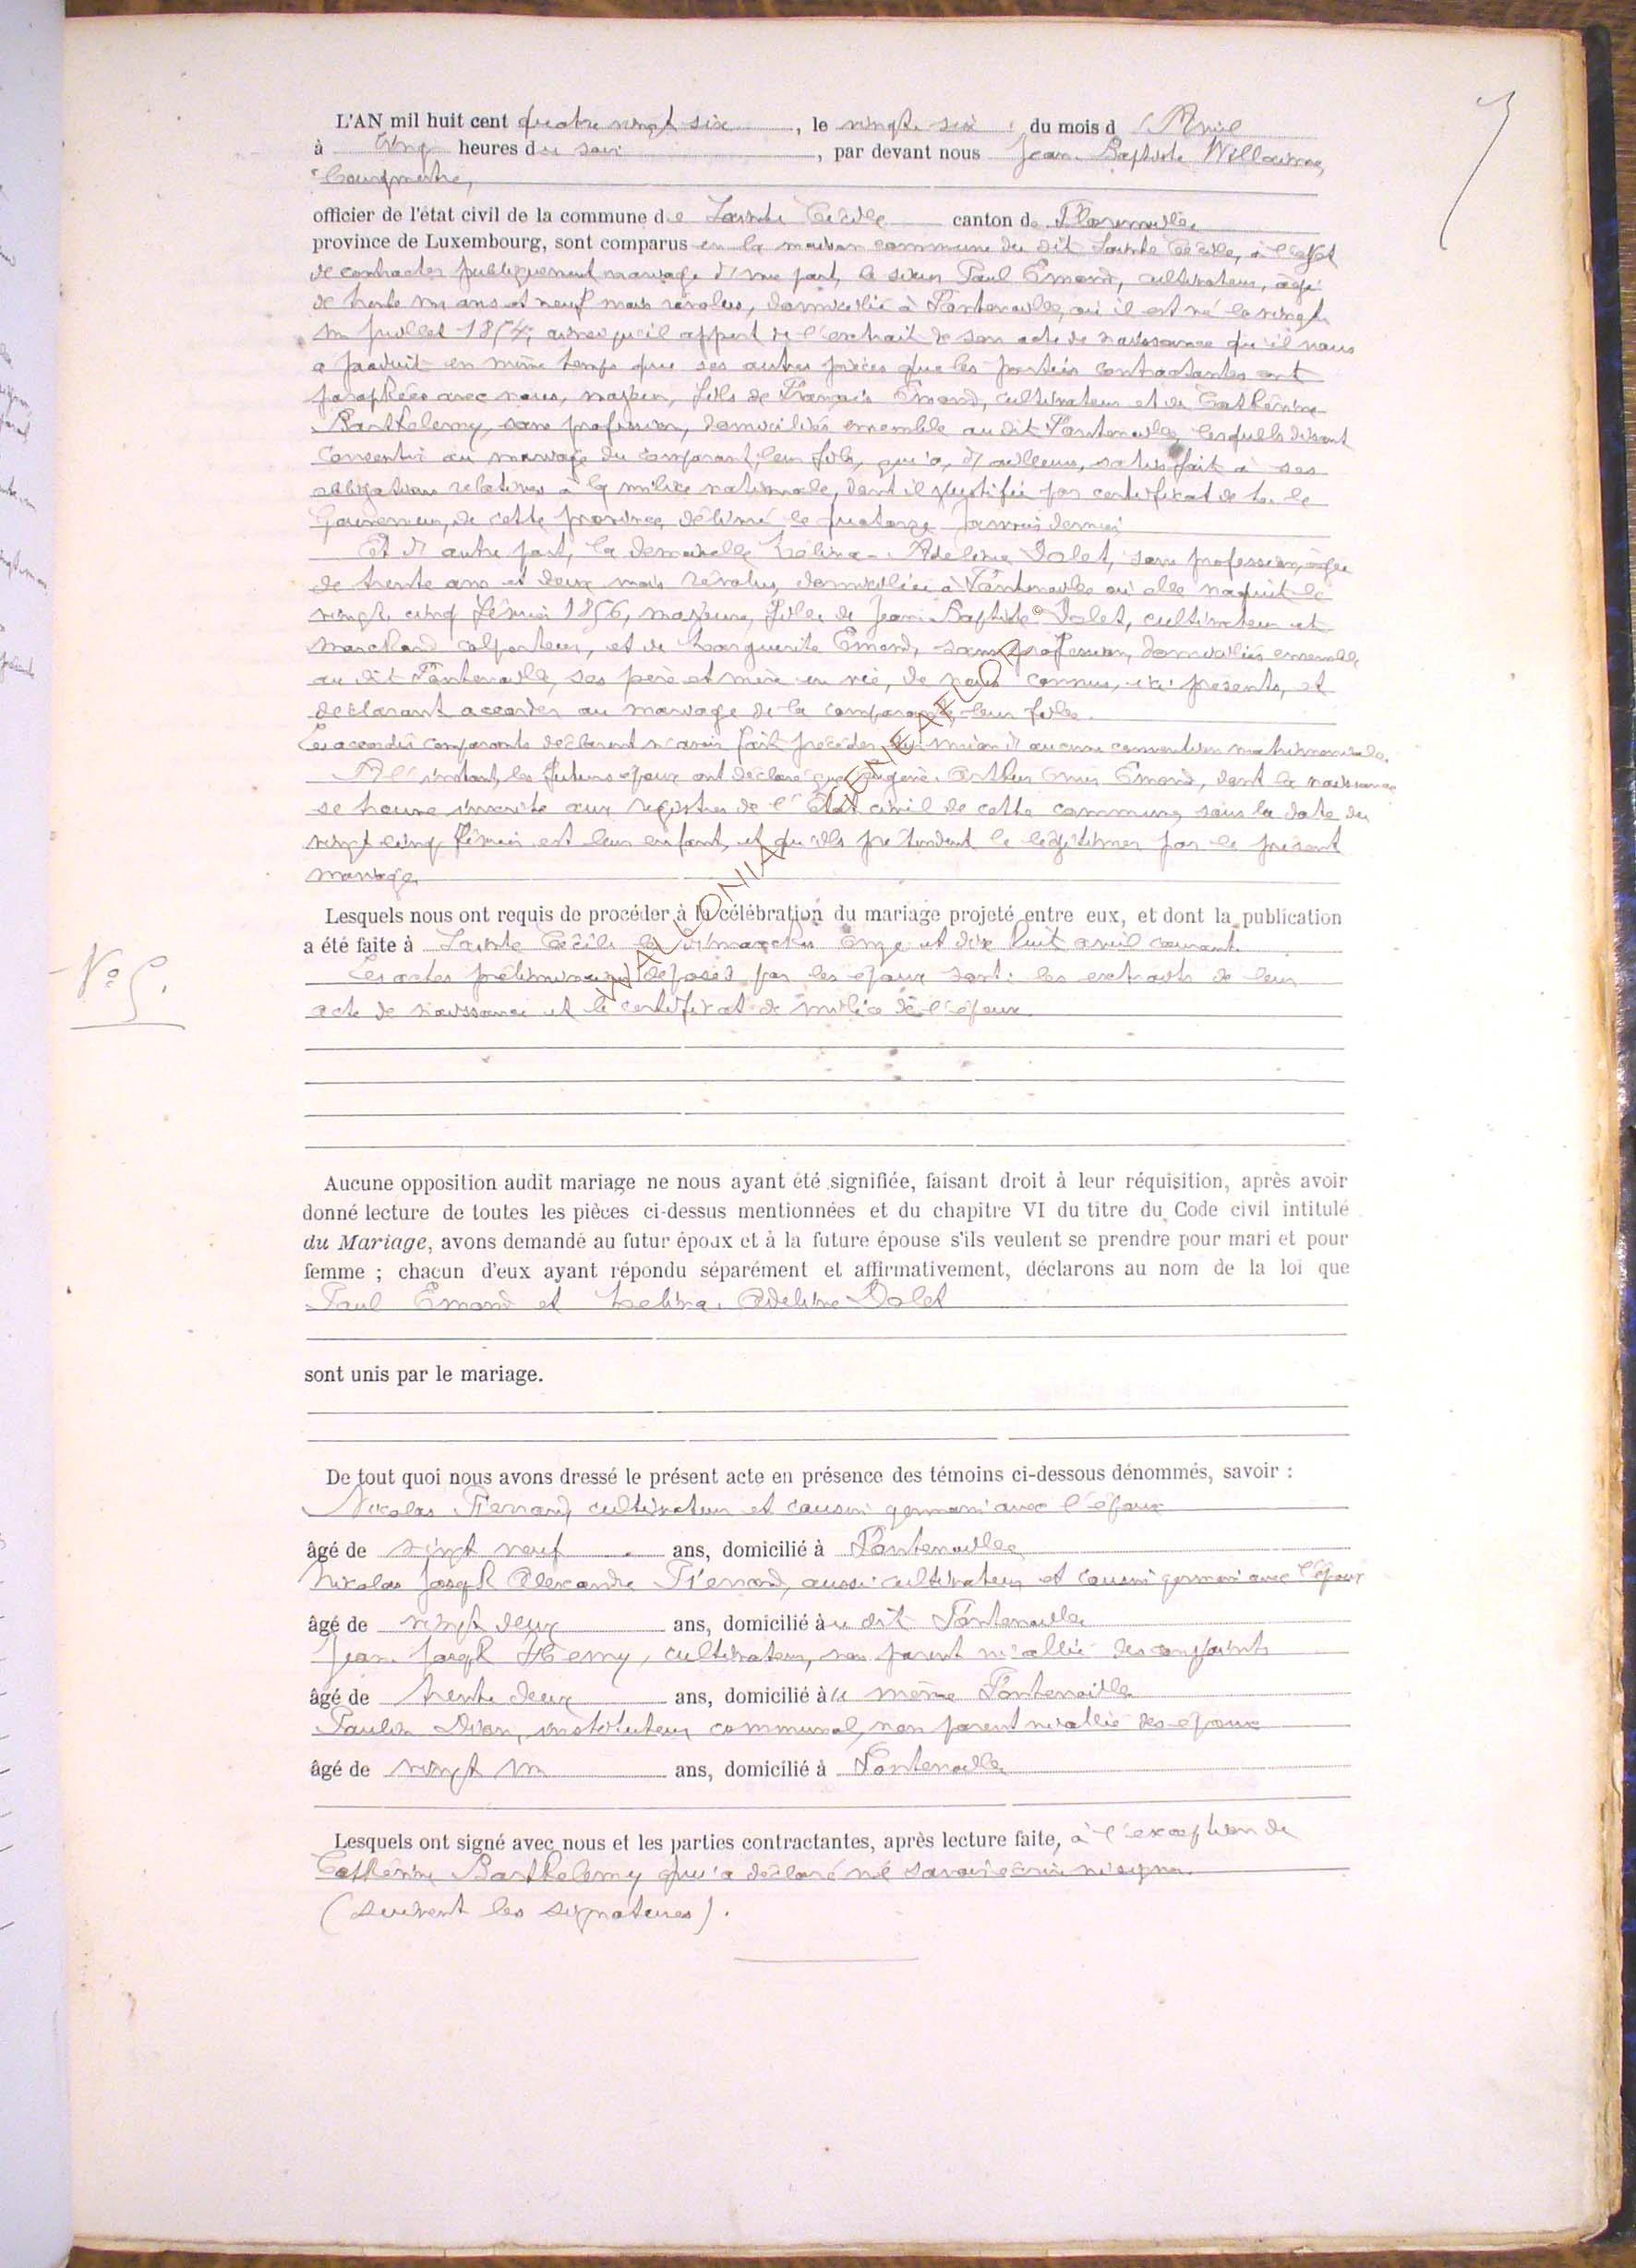 L'AN mil huit cent quatre vingt six, le vingt six du mois d'Avril
à cinq heures du soir, par devant nous Jean Baptiste Willaime,
bourgmestre,
officier de l'état civil de la commune de Sainte Cécile canton de Florenville
province de Luxembourg, sont comparus en la maison commune du dit Sainte Cécile, à l'effet
de contracter publiquement mariage d'une part, le sieur Paul Emond, cultivateur, âgé
de trente un ans et neuf mois révolus, domicilié à Fontenoille, où il est né le vingt
un juillet 1854, ainsi qu'il appert de l'extrait de son acte de naissance qu'il nous
a produit en même temps que ses autres pièces que les parties contractantes ont
paraphées avec nous, majeur, fils de François Emond, cultivateur et de Catherine
Barthelemy, sans profession, domiciliés ensemble au dit Fontenoille, lesquels disent
consentir au mariage du comparant, leur fils, qui a, d'ailleurs, satisfait à ses
obligations relatives à la milice nationale, dont il justifie par certificat de le
Gouverneur, de cette province, délivré le quatorze janvier dernier
Et d'autre part, la demoiselle Zélina Adeline Dolet, sans profession, âgée
de trente ans et deux mois révolus, domiciliée à Fontenoille où elle naquit le
vingt cinq février 1856, majeure, fille de Jean Baptiste Dolet, cultivateur et
marchand colporteur, et de Marguerite Emond, sans profession, domiciliés ensemble
au dit Fontenoille, ses père et mère en vie, de nous connus, ici présents, et
déclarant accorder au mariage de la comparante, leur fille.
Les accordés comparants déclarent n'avoir fait précéder leur union d'aucune convention matrimoniale.
A l'instant, les futurs époux ont déclaré que Eugène Arthur Emond, dont la naissance
se trouve inscrite aux registres de l'Etat civil de cette commune, sous la date du
vingt cinq février est leur enfant, et qu'ils prétendent le légitimer par le présent
mariage.
Lesquels nous ont requis de procéder à la célébration du mariage projeté entre eux, et dont la publication
a été faite à Sainte Cécile les dimanches onze et dix huit avril courant.
N° 5.
Les actes préliminaires déposés par les époux sont: les extraits de leur
acte de naissance et le certificat de milice de l'époux.
WALLONIA GENEAFLOR ©
Aucune opposition audit mariage ne nous ayant été signifiée, faisant droit à leur réquisition, après avoir
donné lecture de toutes les pièces ci-dessus mentionnées et du chapitre VI du titre du Code civil intitulé
du Mariage, avons demandé au futur époux et à la future épouse s'ils veulent se prendre pour mari et pour
femme ; chacun d'eux ayant répondu séparément et affirmativement, déclarons au nom de la loi que
Paul Emond et Zelina Adeline Dolet
sont unis par le mariage.
De tout quoi nous avons dressé le présent acte en présence des témoins ci-dessous dénommés, savoir :
Nicolas cultivateur et cousin germain avec l'époux
âgé de vingt neuf ans, domicilié à Fontenoille
Nicolas Joseph Alexandre aussi cultivateur et cousin germain avec l'époux
âgé de vingt deux ans, domicilié au dit Fontenoille
Jean Joseph Hemy, cultivateur, non parent ni allié des conjoints
âgé de trente deux ans, domicilié au même Fontenoille
Paulin instituteur communal, non parent ni allié des époux
âgé de vingt un ans, domicilié à Fontenoille
Lesquels ont signé avec nous et les parties contractantes, après lecture faite, à l'exception de
Catherine Barthelemy qui a déclaré ne savoir écrire ni signer.
(suivent les signatures).